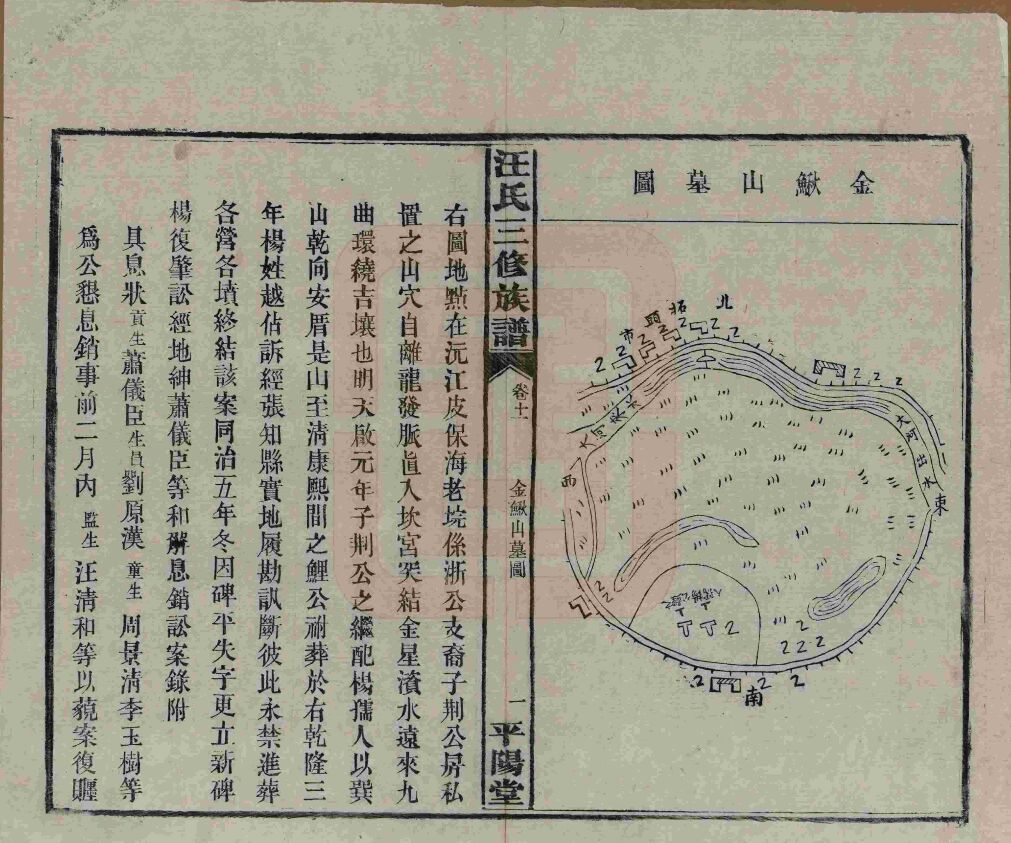 金鰍山墓圖
北
柘
頭
市
大河出水
東
西
南
汪氏三修族譜
卷十一
金鰍山墓圖
一
平陽堂
右圖地㸃在沅江皮保海老垸係浙公支裔子荆公房私
置之山穴自離龍發脈直入坎宮突結金星濱水遠來九
曲環繞吉壤也明天啟元年子荆公之繼配楊孺人以巽
山乾向安厝是山至淸康熙間之鯉公祔葬於右乾隆三
年楊姓越佔訴經張知縣實地履勘訊斷彼此永禁進葬
各營各墳終結該案同治五年冬因碑平失字更立新碑
楊復肇訟經地紳蕭儀臣等和解息銷訟案錄附
具息狀貢生蕭儀臣生員劉原漢童生周景淸李玉樹等
爲公懇息銷事前二月內監生汪淸和等以藐案復壓